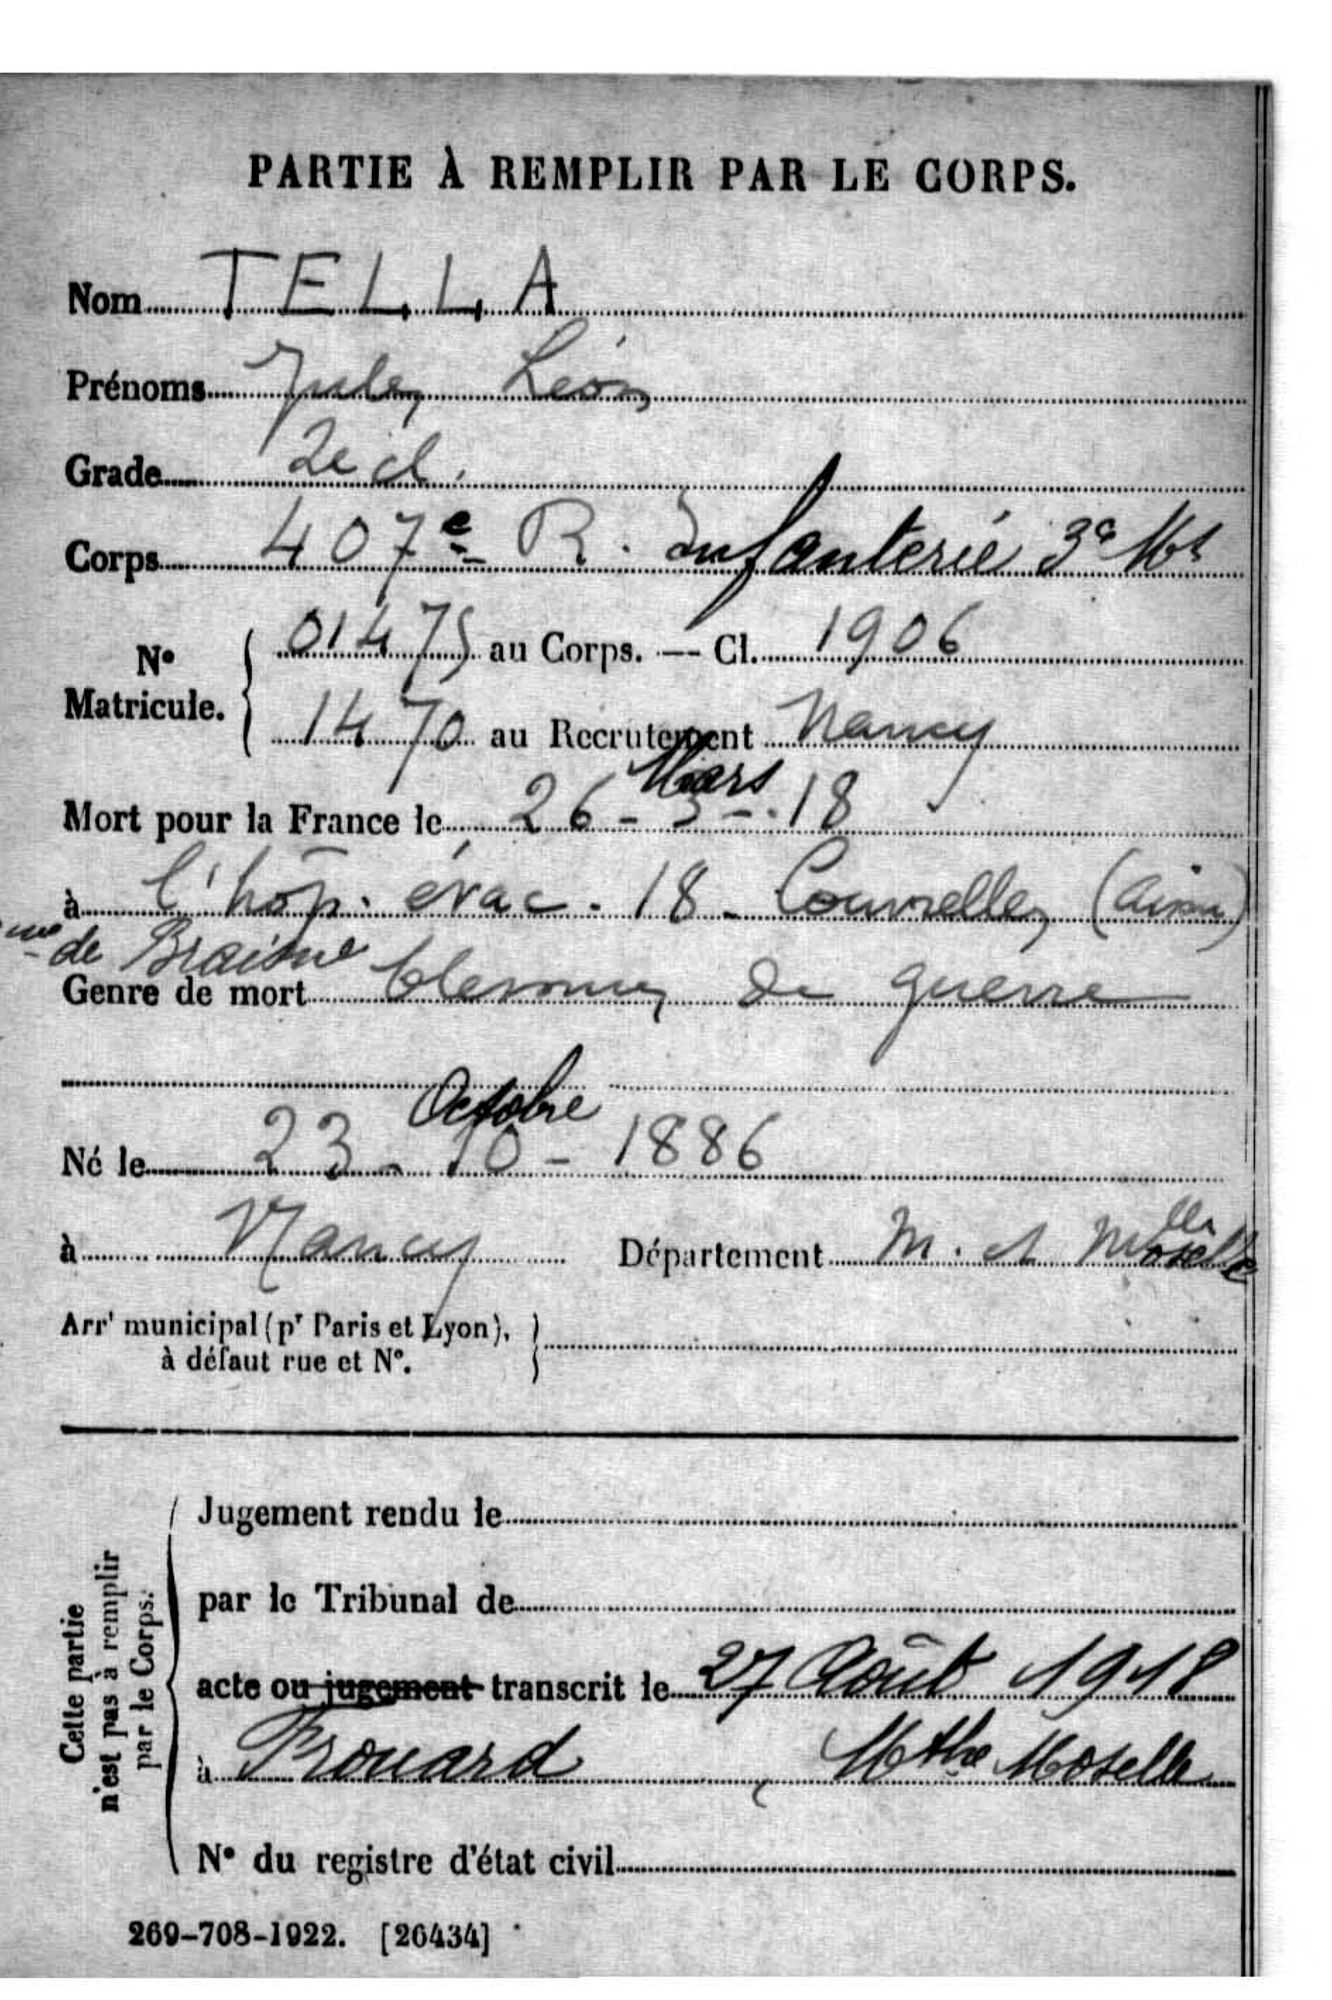 PARTIE À REMPLIR PAR LE CORPS.
Nom TELLA
Prénoms Jules Léon
Grade 2e cl.
Corps 407e R. Infanterie 3e
N° Matricule. 01475 au Corps. — Cl. 1906
1470 au Recrutement Nancy
Mars
Mort pour la France le 26 - 3 - 18
à l'hôp. évac. 18 - Couvrelles (Aisne)
de Braisne
Genre de mort blessures de guerre
Octobre
Né le 23 - 10 - 1886
à Nancy Département M. et Moselle
Arrt municipal (pr Paris et Lyon),
à défaut rue et N°.
Cette partie
n'est pas à remplir
par le Corps.
Jugement rendu le
par le Tribunal de
acte ou jugement transcrit le 27 Août 1918
à Frouard Mthe Moselle
N° du registre d'état civil
269-708-1922. [26434]